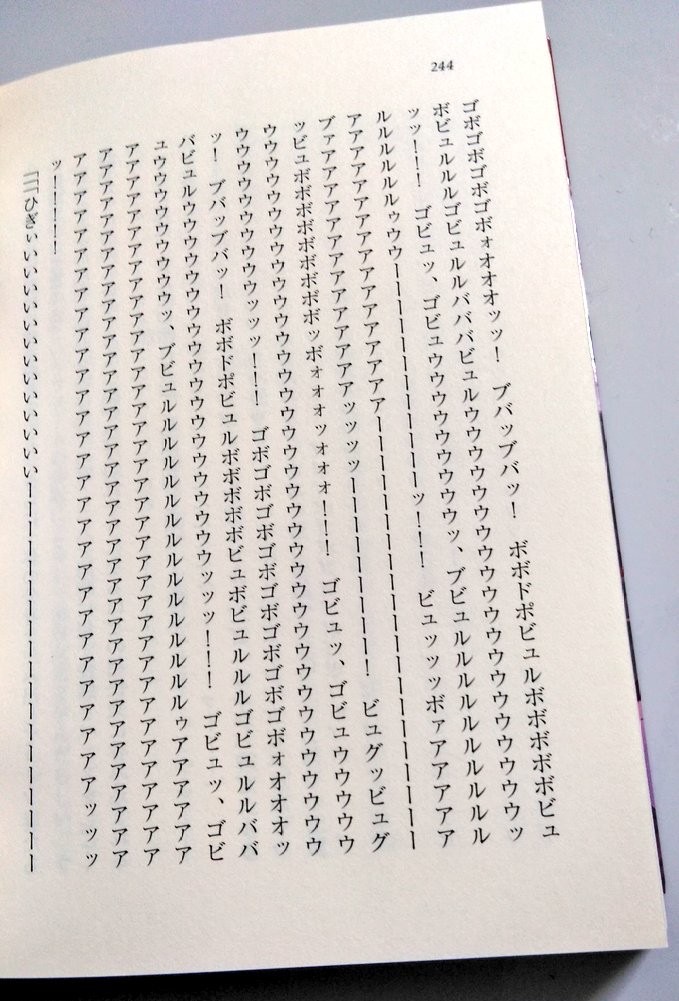 ゴボゴボゴボゴボォオオオオッッ！　ブバッブバッ！　ボボドポビュルボボボボボビュ
ボビュルルルゴビュルルバババビュルウウウウウウウウウウウウウウウウウウウウウッ
ッッ！！！　ゴビュッ、ゴビュウウウウウウウウウウウッ、ブビュルルルルルルルルルル
ルルルルルルゥウウーーーーーーーーーーーーッ！！！　ビュッッッボァアアアアアア
アアアアアアアアアアアアアアアアーーーーーーーーーーーーーーーーーーーーーーー
ブァアアアアアアアアアアアアアアアッッッッーーーーーーーーー！　ビュグッビュグ
ッビュボボボボボボボボボッボォオオッォオォ！！！　ゴビュッ、ゴビュウウウウウ
ウウウウウウウウウウウウウウウウウウウウウウウウウウウウウウウウウウウウウウウ
ウウウウウウウウウッッッ！！！　ゴボゴボゴボゴボゴボゴボゴボゴボゴボォオオオッ
ッ！　ブバッブバッ！　ボボドポビュルボボボボボビュボビュルルルゴビュルルババ
バビュルウウウウウウウウウウウウウウウウウウウウウッッッ！！！　ゴビュッ、ゴビ
ュウウウウウウウウウッ、ブビュルルルルルルルルルルルルルルルルルゥアアアアアア
アアアアアアアアアアアアアアアアアアアアアアアアアアアアアアアアアアアアアアア
アアアアアアアアアアアアアアアアアアアアアアアアアアアアアアアアアアアアアアア
アアアアアアアアアアアアアアアアアアアアアアアアアアアアッッッ
ッ！！！！
「「「ひぎぃいいいいいいいいいいいいーーーーーーーーーーーーーーーーーーー
244